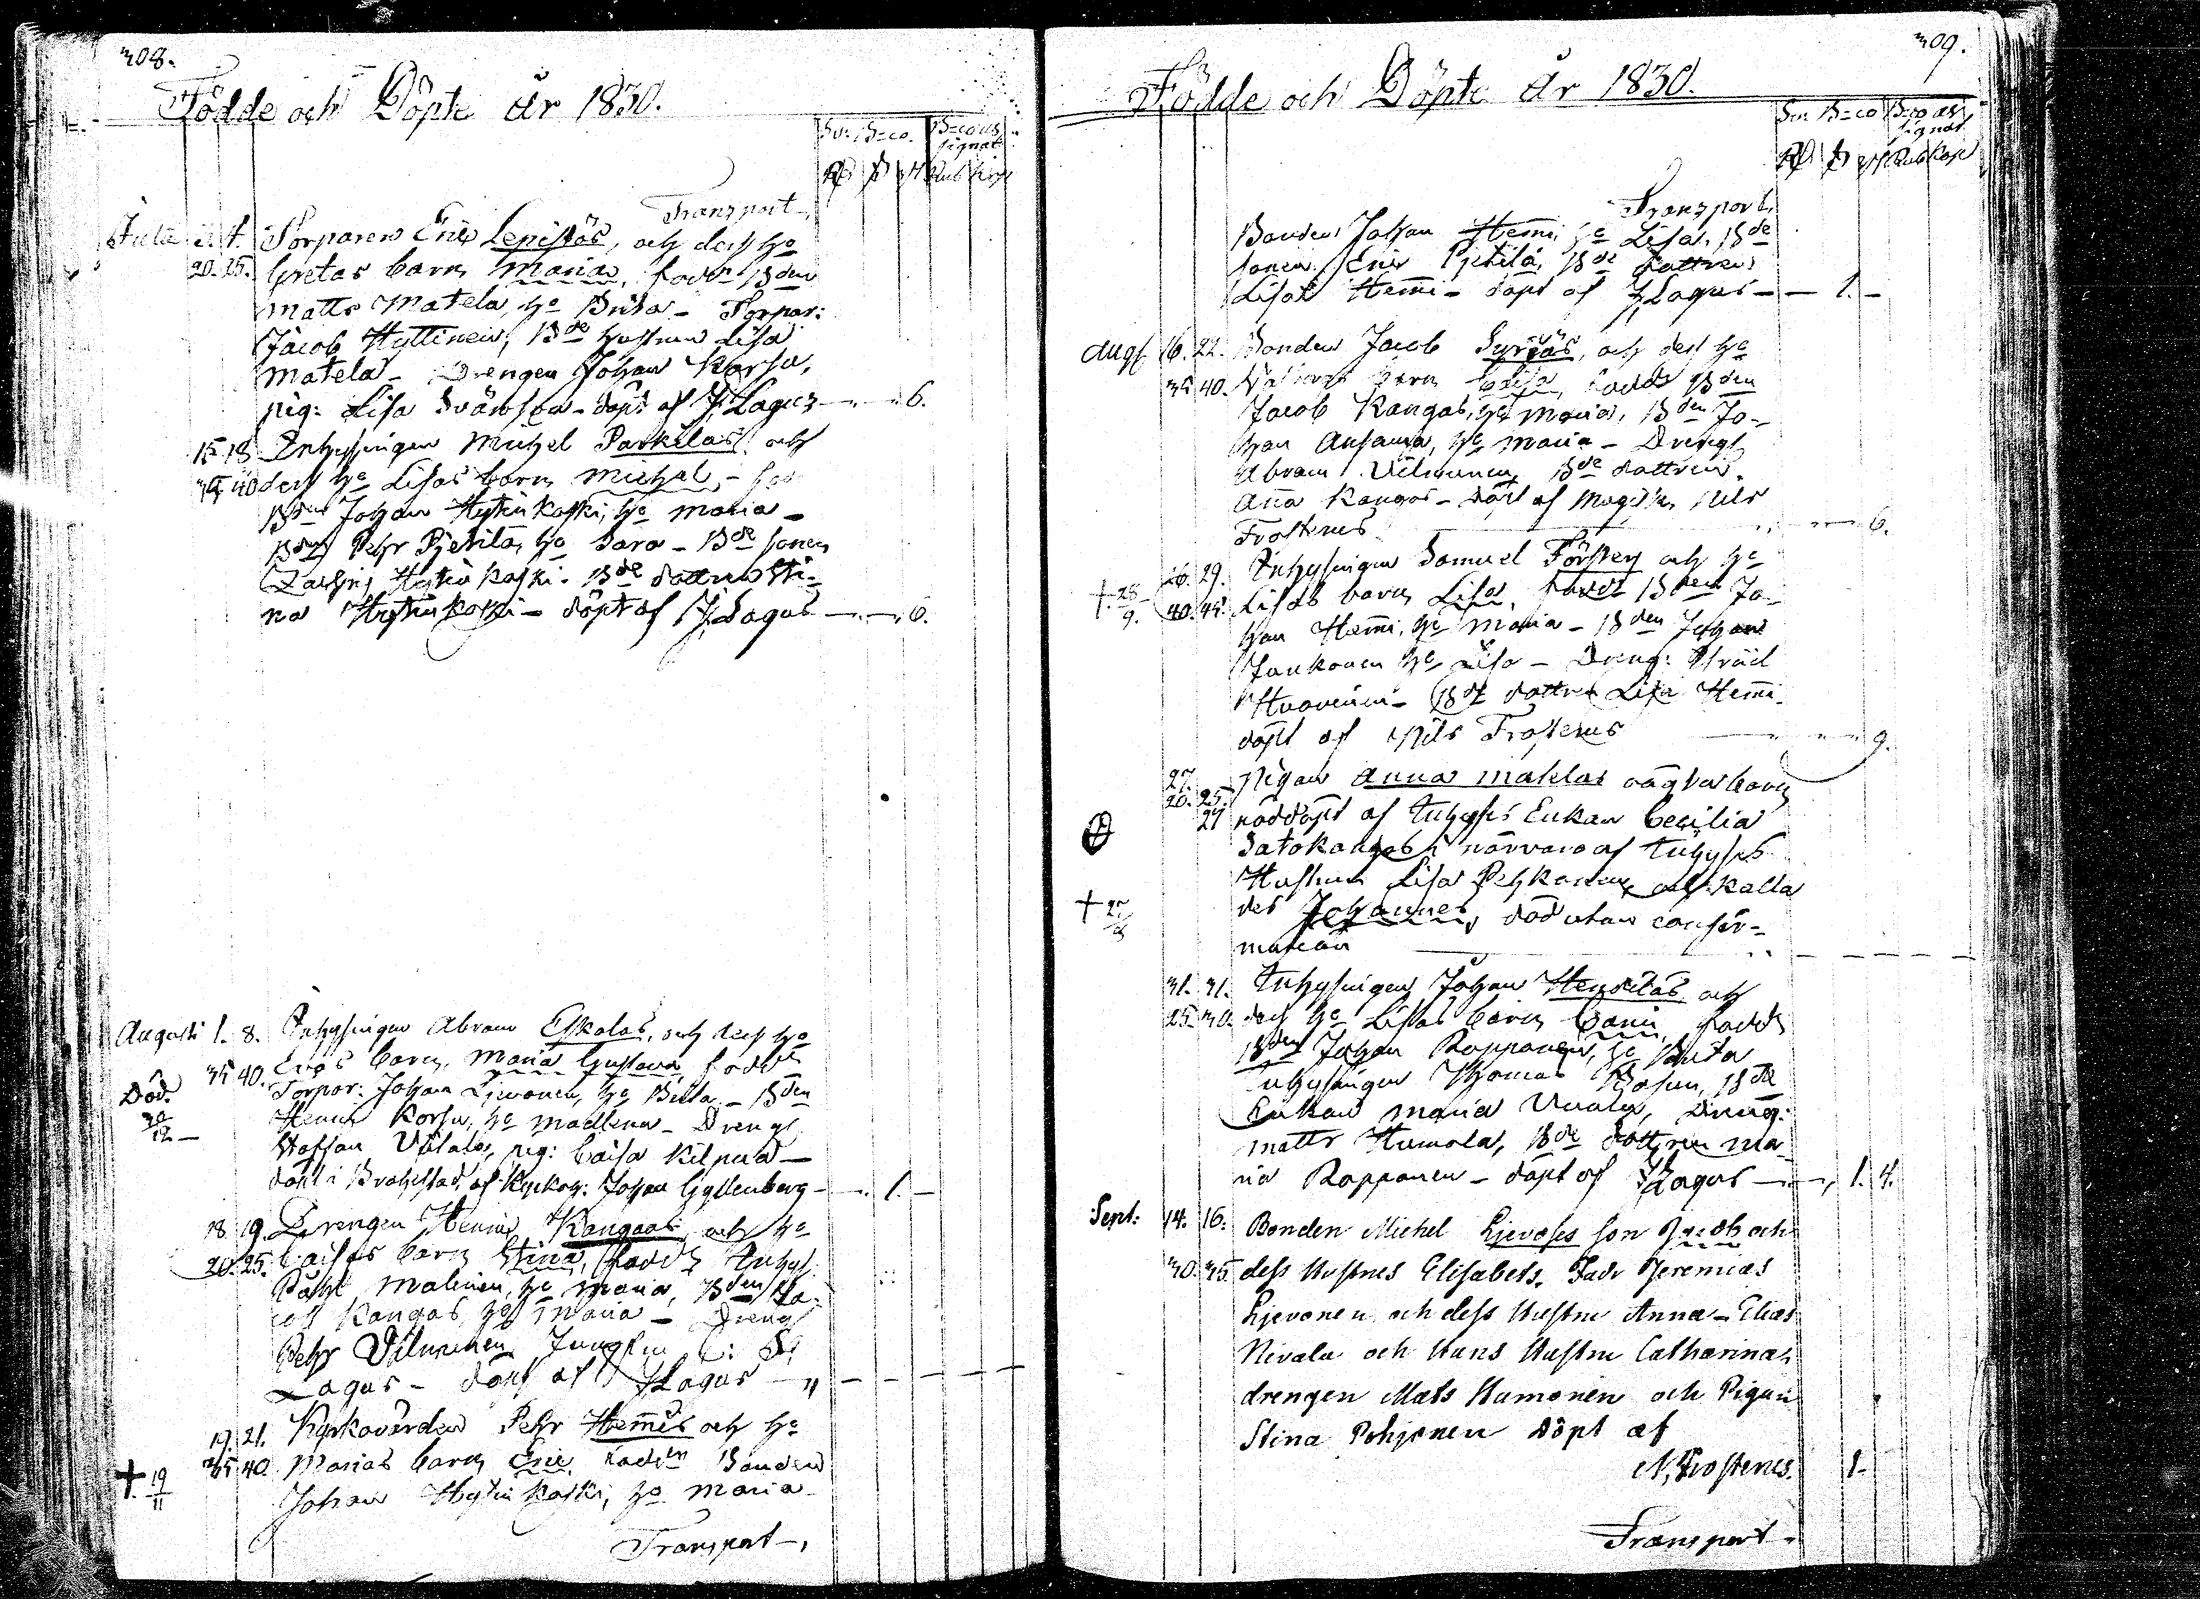 308.
Födde och Döpte år 1830.
Sv: B=co. B=co as
signat
Rd ß rst Rub Kop
Transport
Julii 3. 4. Torparen Eric Lepistös, och dess hu
20. 25. Gretas barn Maria, fadd Bden
Matts Matela, hu Brita - Torpar:
Jacob Hyttinen, Bde hustrun Lisa
Matela - Drengen Johan Korhu,
pig: Lisa - döpt af J. Lagus 6.
15 18 Inhysingen Michel Parkilas och
35 40 dess hu Lisas barn Michel, -
Bden Johan Hytinkoski, hu Maria -
Bden Pehr Pjetilä, hu Sara - Bde sonen
Zachris Hytinkoski. Bde dottren Sti-
na Hytinkoski - döpt af J. Lagus 6.
Augusti 1. 8. Inhysingen Abram Eskolas, och dess hu
35 40. Evas barn Maria Gustava, fadd
Död. Torpar: Johan Ljevonen, hu Brita - Bden
Henric Korhu, hu Madlena - Drengs
Staffan Ylitalo, pig: Caisa Kilpua -
döpt i Brahestad af Kyrkoh: Johan Gyllenberg 1.
18 19. Drengen Henric Kangaas och hu
20. 25. Caisas barn Stina, fadd Inhys:
Påhl Malinen, hu Maria, Bden Ja-
cob Kangas, hu Maria - Drengs
Pehr Vilmunen Jungfru C: S:
Lagus - döpt af J Lagus "
19. 21. Kyrkovärden Pehr Hemmis och hu
35 40 Marias barn Eric, fadd Bonden
+ 19/11 Johan Hytinkoski, hu Maria
Transport
309.
Födde och Döpte år 1830.
Sv: B=co B=co as
signat
Rd ß rst Rub Kop
Transport
Bonden Johan Hemmi, hu Lisa, Bde
sonen Eric Pjetilä, Bde dottren
Lisa Hemmi - döpt af J Lagus 1.
Aug: 16. 22. Bonden Jacob Syrjäs, och dess hu
35 40. barn Caisa, fadd Bden
Jacob Kangas, hu Maria, Bden Jo-
han Ansama, hu Maria - Drengs
Abram Vilmunen, Bde dottren
Anna Kangas - döpt af Magister Nils
Frosterus 6.
26. 29. Inhysingen Samuel Förster och hu
+ 28/9. 40. 45. Lisas barn Lisa, fadd Bden Jo-
han Hemmi, hu Maria - Bden Johan
Junkonen hu Lisa - Dreng: Israel
Huovinen - Bde dottren Lisa Hemmi
döpt af Nils Frosterus 9.
27. Pigan Anna Maklas oägta barn
20. 25.
27 nöddöpt af Inhyses Enkan Cecilia
Satokangas i närvaro af Inhyses
Hustrun Lisa Pehkonen och kalla
des Johannes, död utan confir-
mation
31. 31. Inhysingen Johan Heusilas och
25. 30. dess hu Lisas barn fadd
Bden Johan Rapponen, hu Brita
Inhysingen Thomas Bde
Enkan Maria Drengs:
Matts Humola, Bde dottren Ma
ria Rapponen - döpt af J Lagus 1. 4.
Sept: 14. 16. Bonden Michel Ljevoses son Jacob och
30. 35. dess Hustrus Elisabets, Fadr Jeremias
Ljevonen och dess Hustru Anna - Elias
Nivala och Hans Hustru Catharina,
drengen Mats Humonen och Pigan
Stina Pohjonen Döpt af
N, Frosterus. 1-
Transport